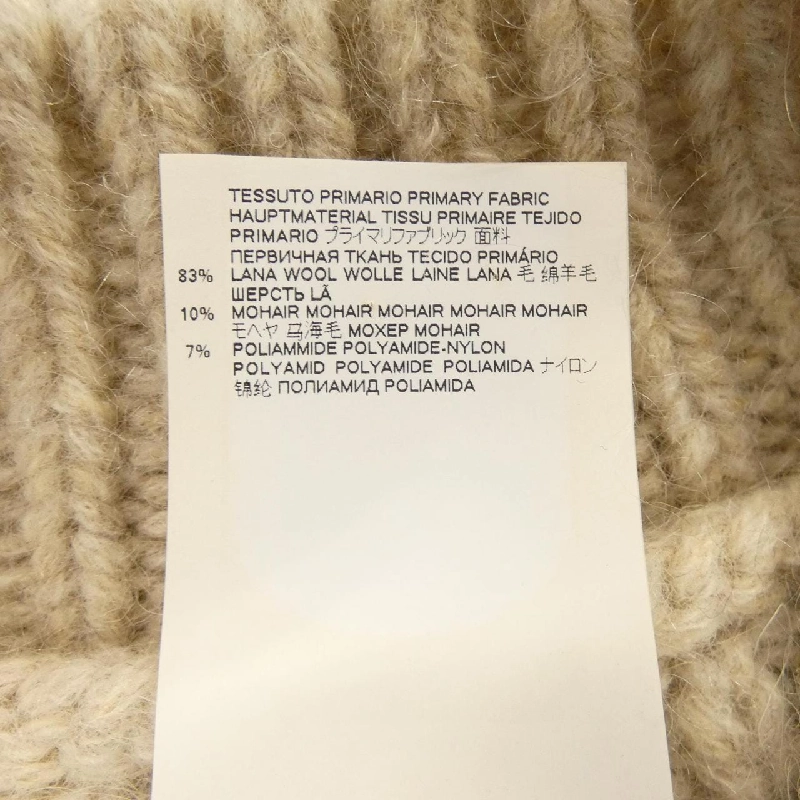 TESSUTO PRIMARIO PRIMARY FABRIC
HAUPTMATERIAL TISSU PRIMAIRE TEJIDO
PRIMARIO プライマリファブリック 面料
ПЕРВИЧНАЯ ТКАНЬ TECIDO PRIMÁRIO
83% LANA WOOL WOLLE LAINE LANA 毛 绵羊毛
ШЕРСТЬ LÃ
10% MOHAIR MOHAIR MOHAIR MOHAIR MOHAIR
モヘヤ 马海毛 МОХЕР MOHAIR
7% POLIAMMIDE POLYAMIDE-NYLON
POLYAMID POLYAMIDE POLIAMIDA ナイロン
锦纶 ПОЛИАМИД POLIAMIDA